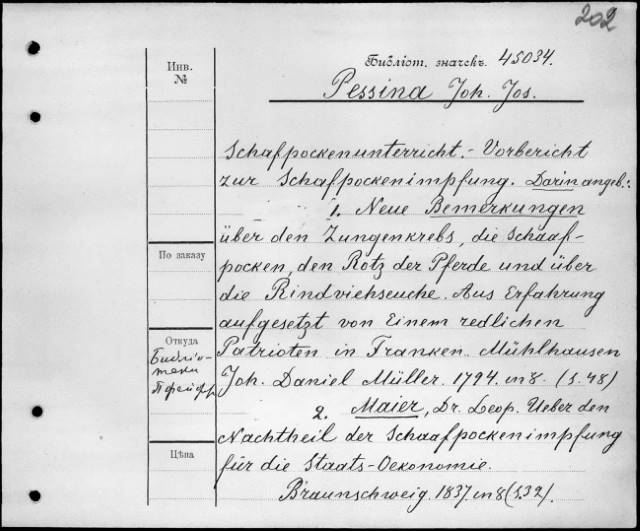 202
Инв.
№
Библіот. значекъ. 45034.
Pessina Joh. Jos.
Schafpockenunterricht.- Vorbericht
zur Schafpockenimpfung. Darin angeb.:
1. Neue Bemerkungen
über den Zungenkrebs, die Schaaf-
pocken, den Rotz der Pferde und über
die Rindviehseuche. Aus Erfahrung
aufgesetzt von Einem redlichen
Patrioten in Franken. Mühlhausen
Joh. Daniel Müller. 1794. in 8. (S. 48)
2. Maier, Dr. Leop. Ueber den
Nachtheil der Schaafpockenimpfung
für die Staats-Oekonomie.
Braunschweig. 1837. in 8 (S. 32).
По заказу
Откуда
Библіо-
теки
Пфейфр
Цѣна